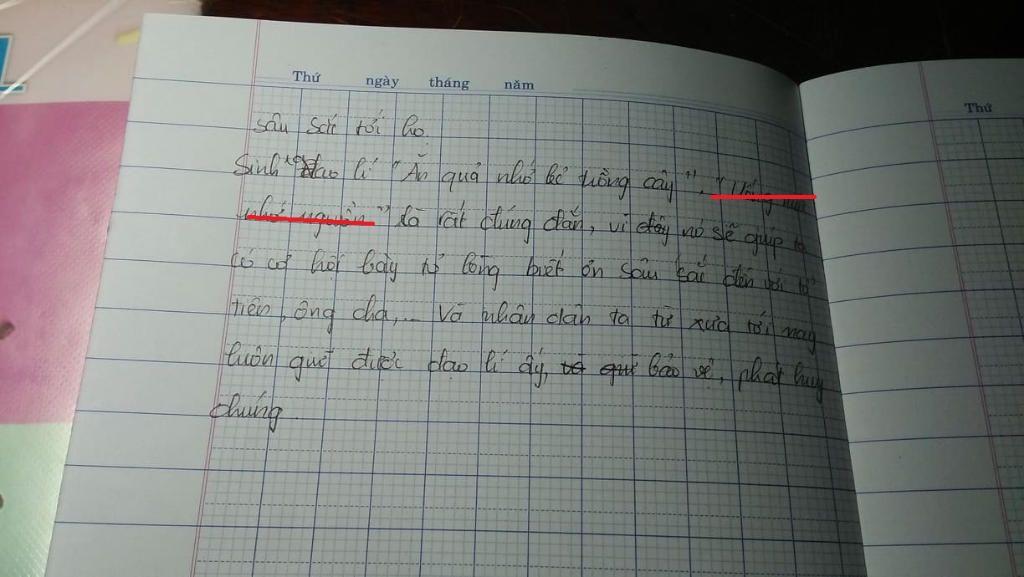 Thứ ngày tháng năm
Thứ
sâu sắc tới họ.
đạo lí "Ăn quả nhớ kẻ trồng cây", "Uống
nhớ nguồn" là rất đúng đắn, vì đây nó sẽ giúp ta
có cơ hội bày tỏ lòng biết ơn sâu sắc đến với tổ
tiên, ông cha,... Và nhân dân ta từ xưa tới nay
luôn được đạo lí ấy, bảo vệ, phát huy
chúng.